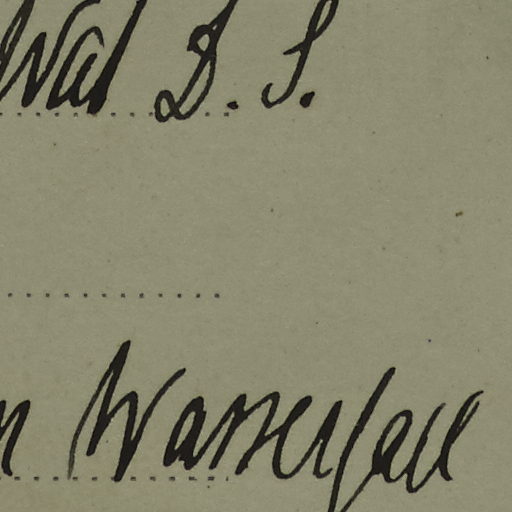 Wal D. S.
n Wasserfall